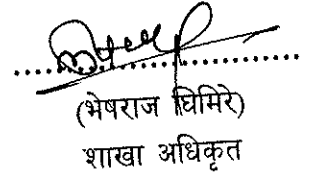 (भेषराज घिमिरे)
शाखा अधिकृत